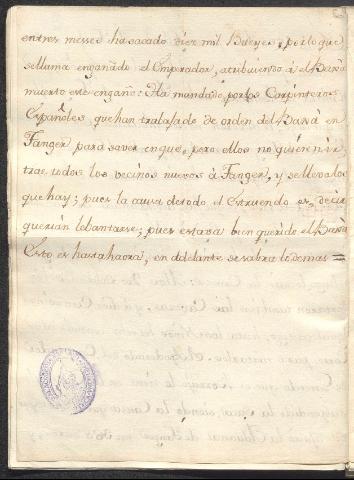 en tres meses ha sacado diez mil Bueyes, por lo que
se llama engañado el Emperador, atribuiendo á el Baxá
muerto este engaño. Ha mandado por los Carpinteros
Españoles, que han trabajado de orden del Baxá en
Tanger para saver en que, pero ellos no quieren ir
tras todos los vecinos nuevos á Tanger, y se llevo lo
que hay; pues la causa de todo el estruendo es, decir
querian lebantarse; pues estava bien querido el Baxá
Esto es hasta haora, en adelante se sabra lo demas =